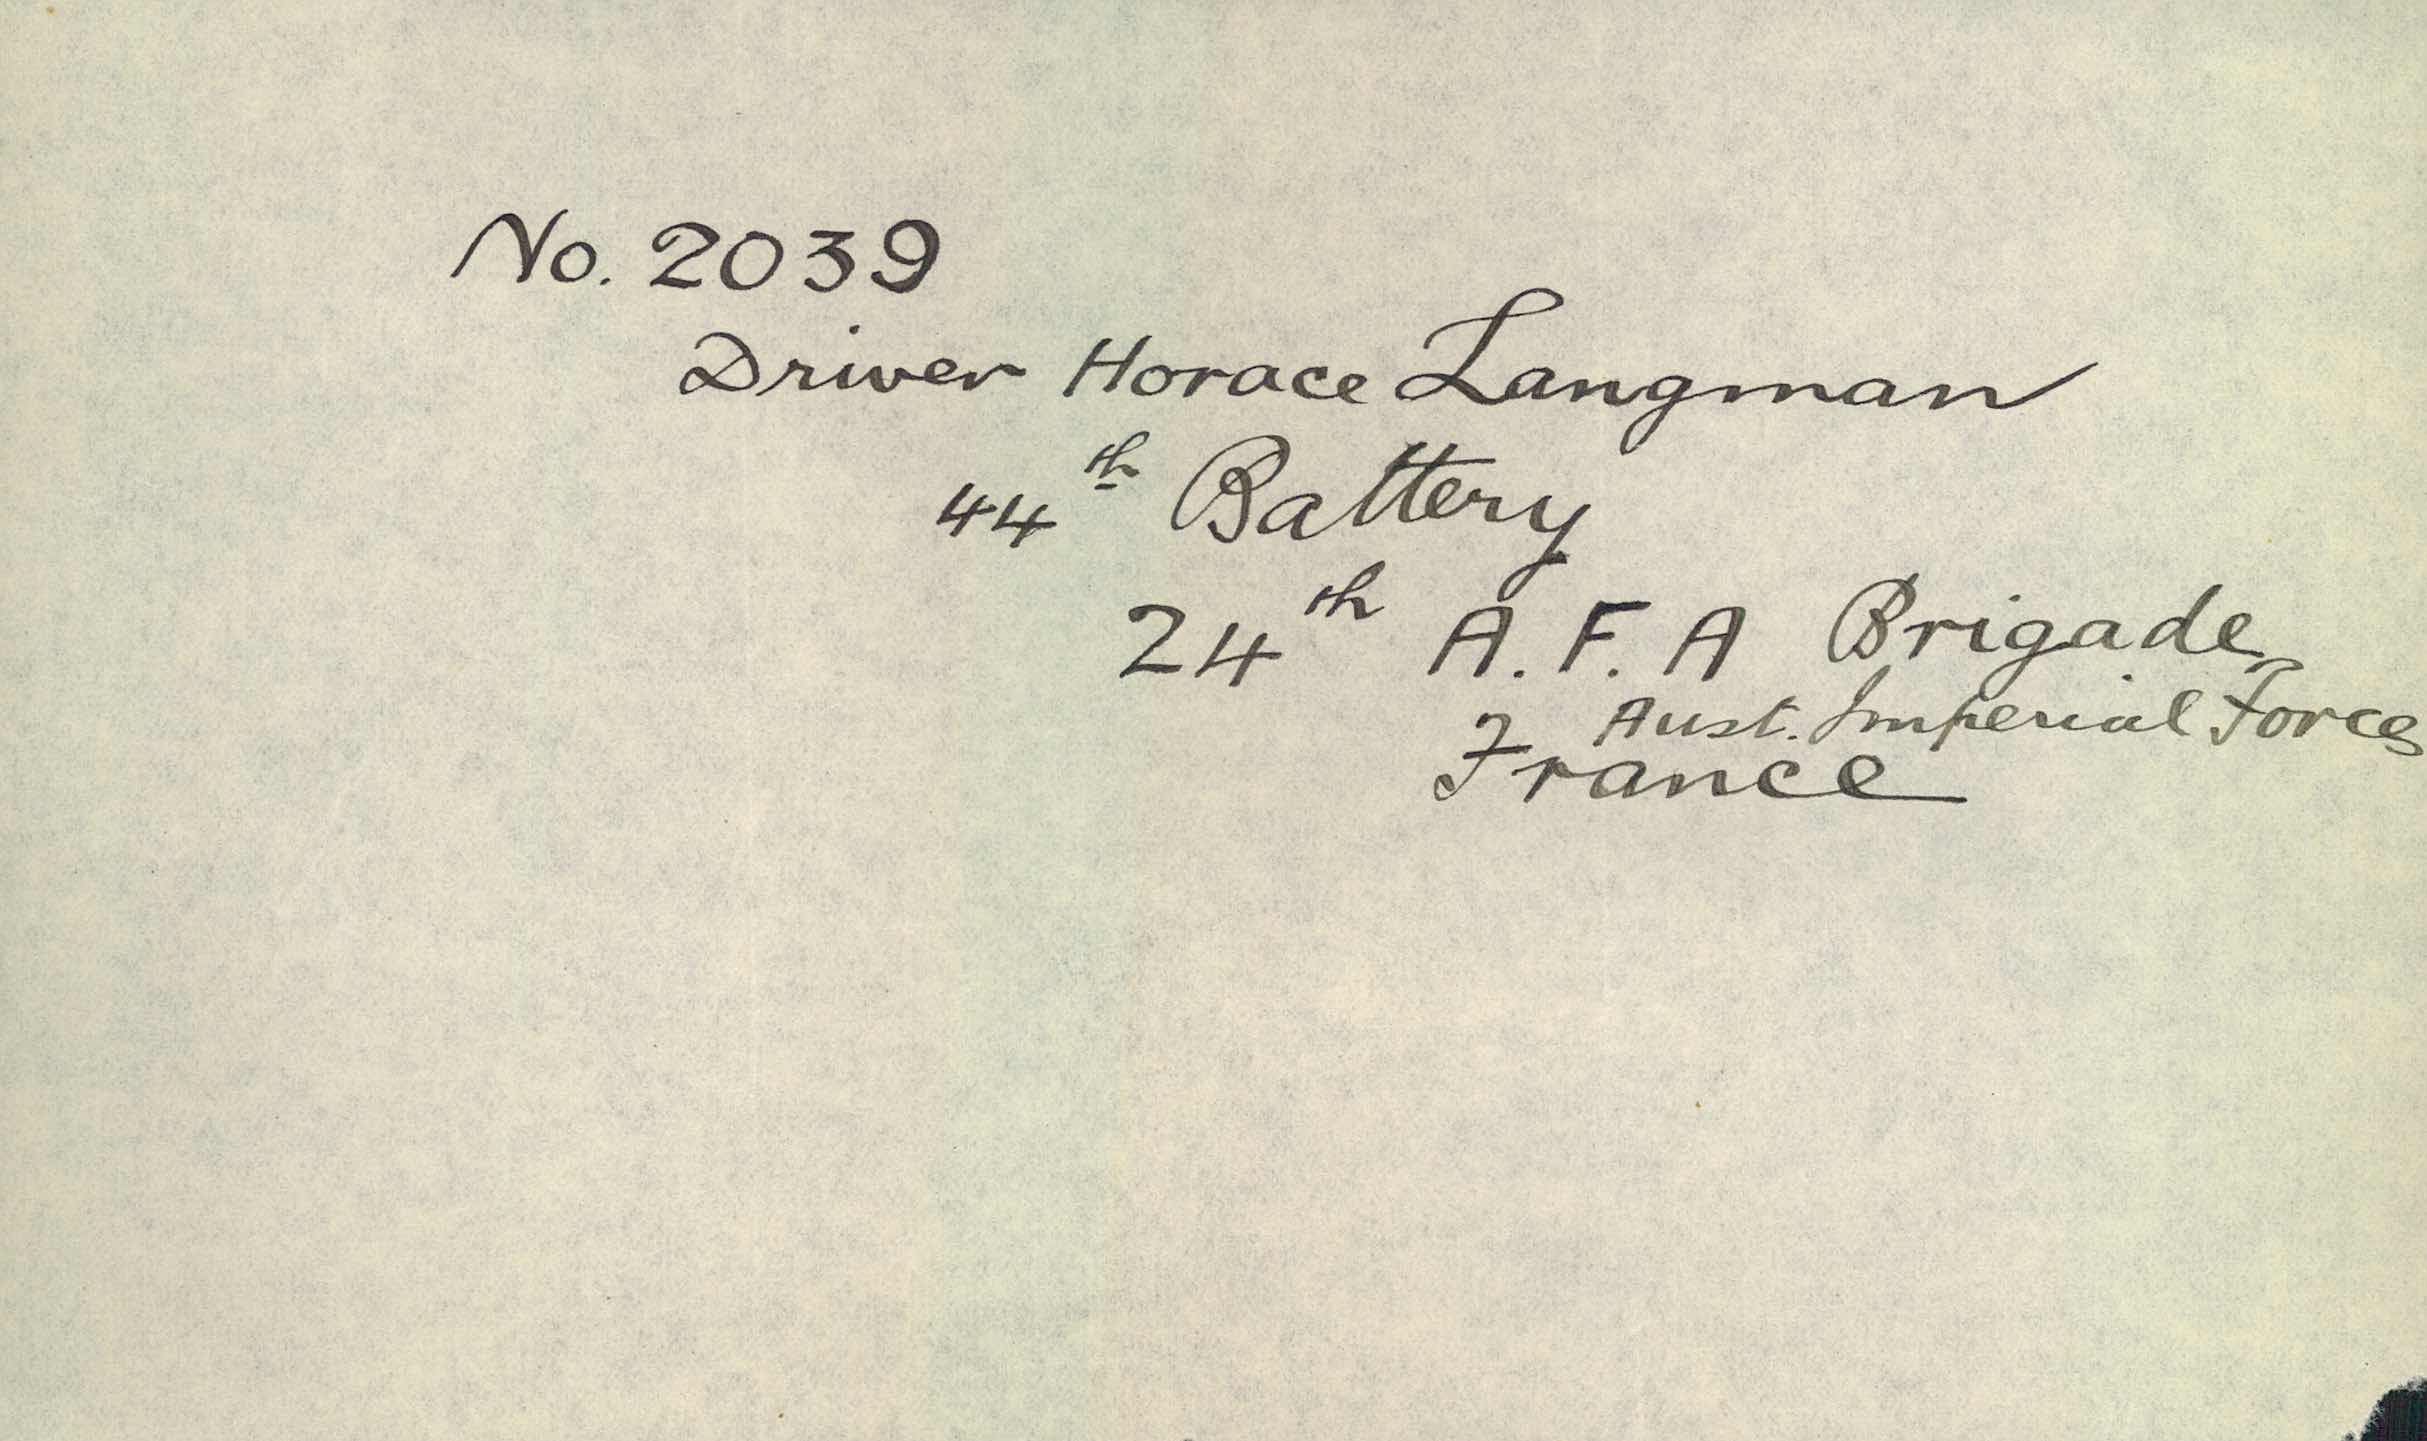 No. 2039
Driver Horace Langman
44th Battery
24th A. F. A Brigade
Aust. Imperial Forces
France